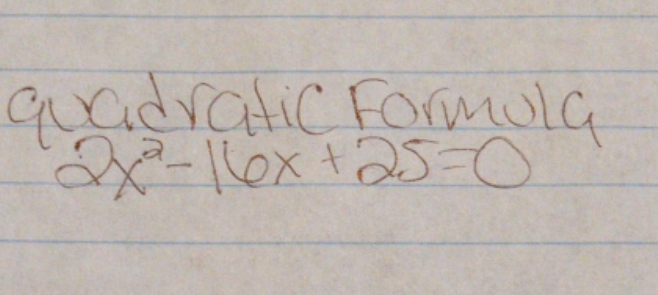 quadratic Formula
2x²-16x+25=0